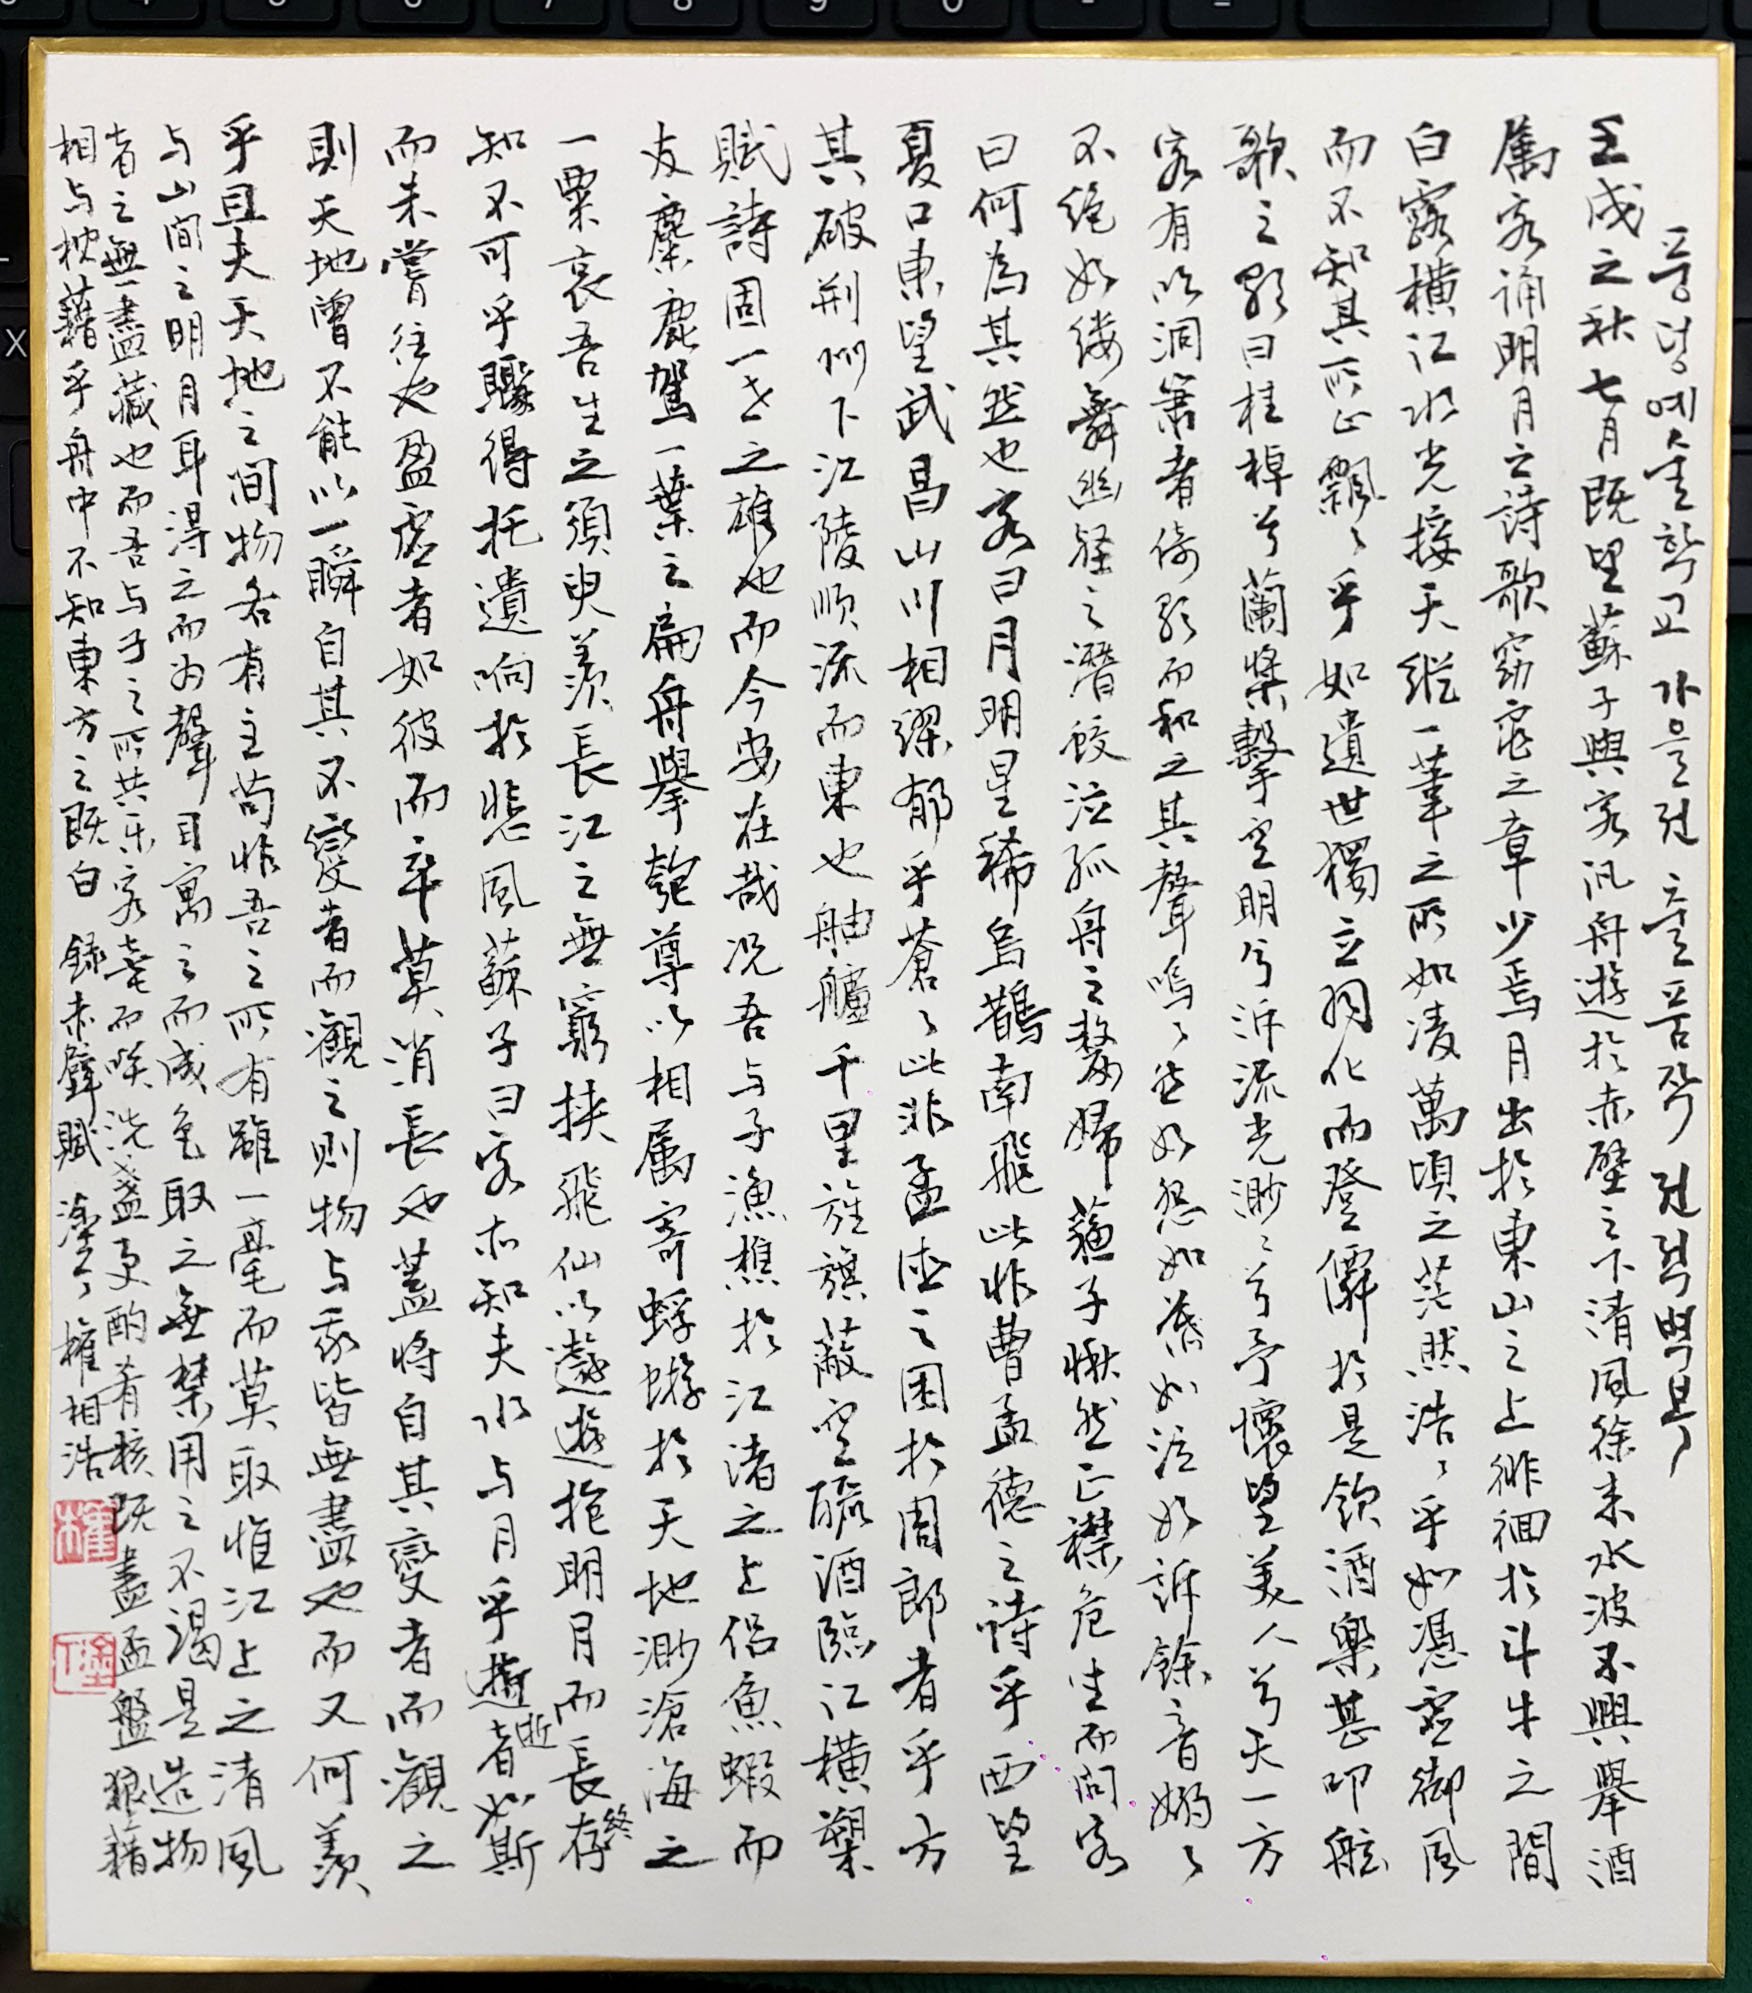 풍덩예술학교 가을전 출품작 전적벽부
壬戌之秋七月既望蘇子與客汎舟遊於赤壁之下清風徐来水波不興舉酒
属客誦明月之詩歌窈窕之章少焉月出於東山之上徘徊於斗牛之間
白露横江水光接天縱一葦之所如凌萬頃之茫然浩々乎如憑虚御風
而不知其所止飄々乎如遺世獨立羽化而登僊於是飲酒樂甚叩舷
歌之歌曰桂棹兮蘭槳擊空明兮泝流光渺々兮予懷望美人兮天一方
客有吹洞簫者倚歌而和之其聲嗚々然如怨如慕如泣如訴餘音嫋々
不絶如缕舞幽壑之潛蛟泣孤舟之嫠婦蘇子愀然正襟危坐而問客
曰何為其然也客曰月明星稀烏鵲南飛此非曹孟德之詩乎西望
夏口東望武昌山川相繆郁乎蒼々此非孟德之困於周郎者乎方
其破荆州下江陵順流而東也舳艫千里旌旗蔽空釃酒臨江横槊
賦詩固一世之雄也而今安在哉况吾与子漁樵於江渚之上侣魚蝦而
友麋鹿駕一葉之扁舟舉匏尊以相属寄蜉蝣於天地渺滄海之
一粟哀吾生之須臾羡長江之無窮挟飛仙以遨遊抱明月而長終存
知不可乎驟得托遺响於悲風蘇子曰客亦知夫水与月乎逝者如斯
而未嘗往也盈虚者如彼而卒莫消長也蓋将自其變者而觀之
則天地曾不能以一瞬自其不變者而觀之则物与我皆無盡也而又何羡
乎且夫天地之間物各有主苟非吾之所有雖一毫而莫取惟江上之清風
与山间之明月耳得之而为聲目寓之而成色取之無禁用之不竭是造物
者之無盡藏也而吾与子之所共乐客喜而笑洗盏更酌肴核既盡盃盤狼藉
相与枕藉乎舟中不知東方之既白 録赤壁賦 塗丁 權相浩
權
塗丁